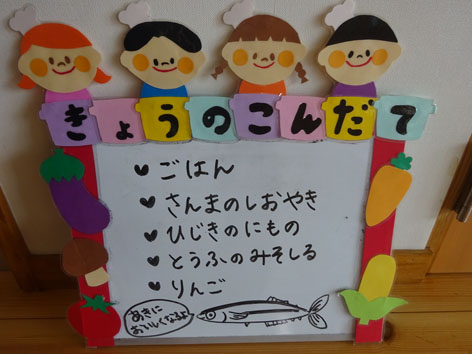 きょうのこんだて
♥ ごはん
♥ さんまのしおやき
♥ ひじきのにもの
♥ とうふのみそしる
♥ りんご
あきに
おいしくなるよ